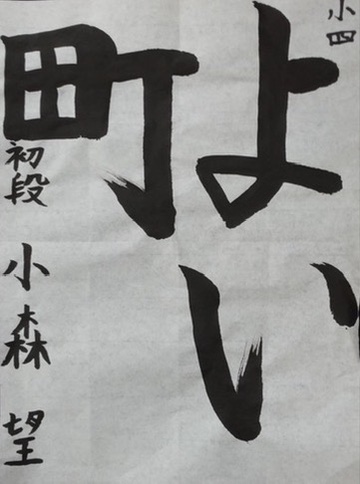 小四
よい
町
初段 小森 望